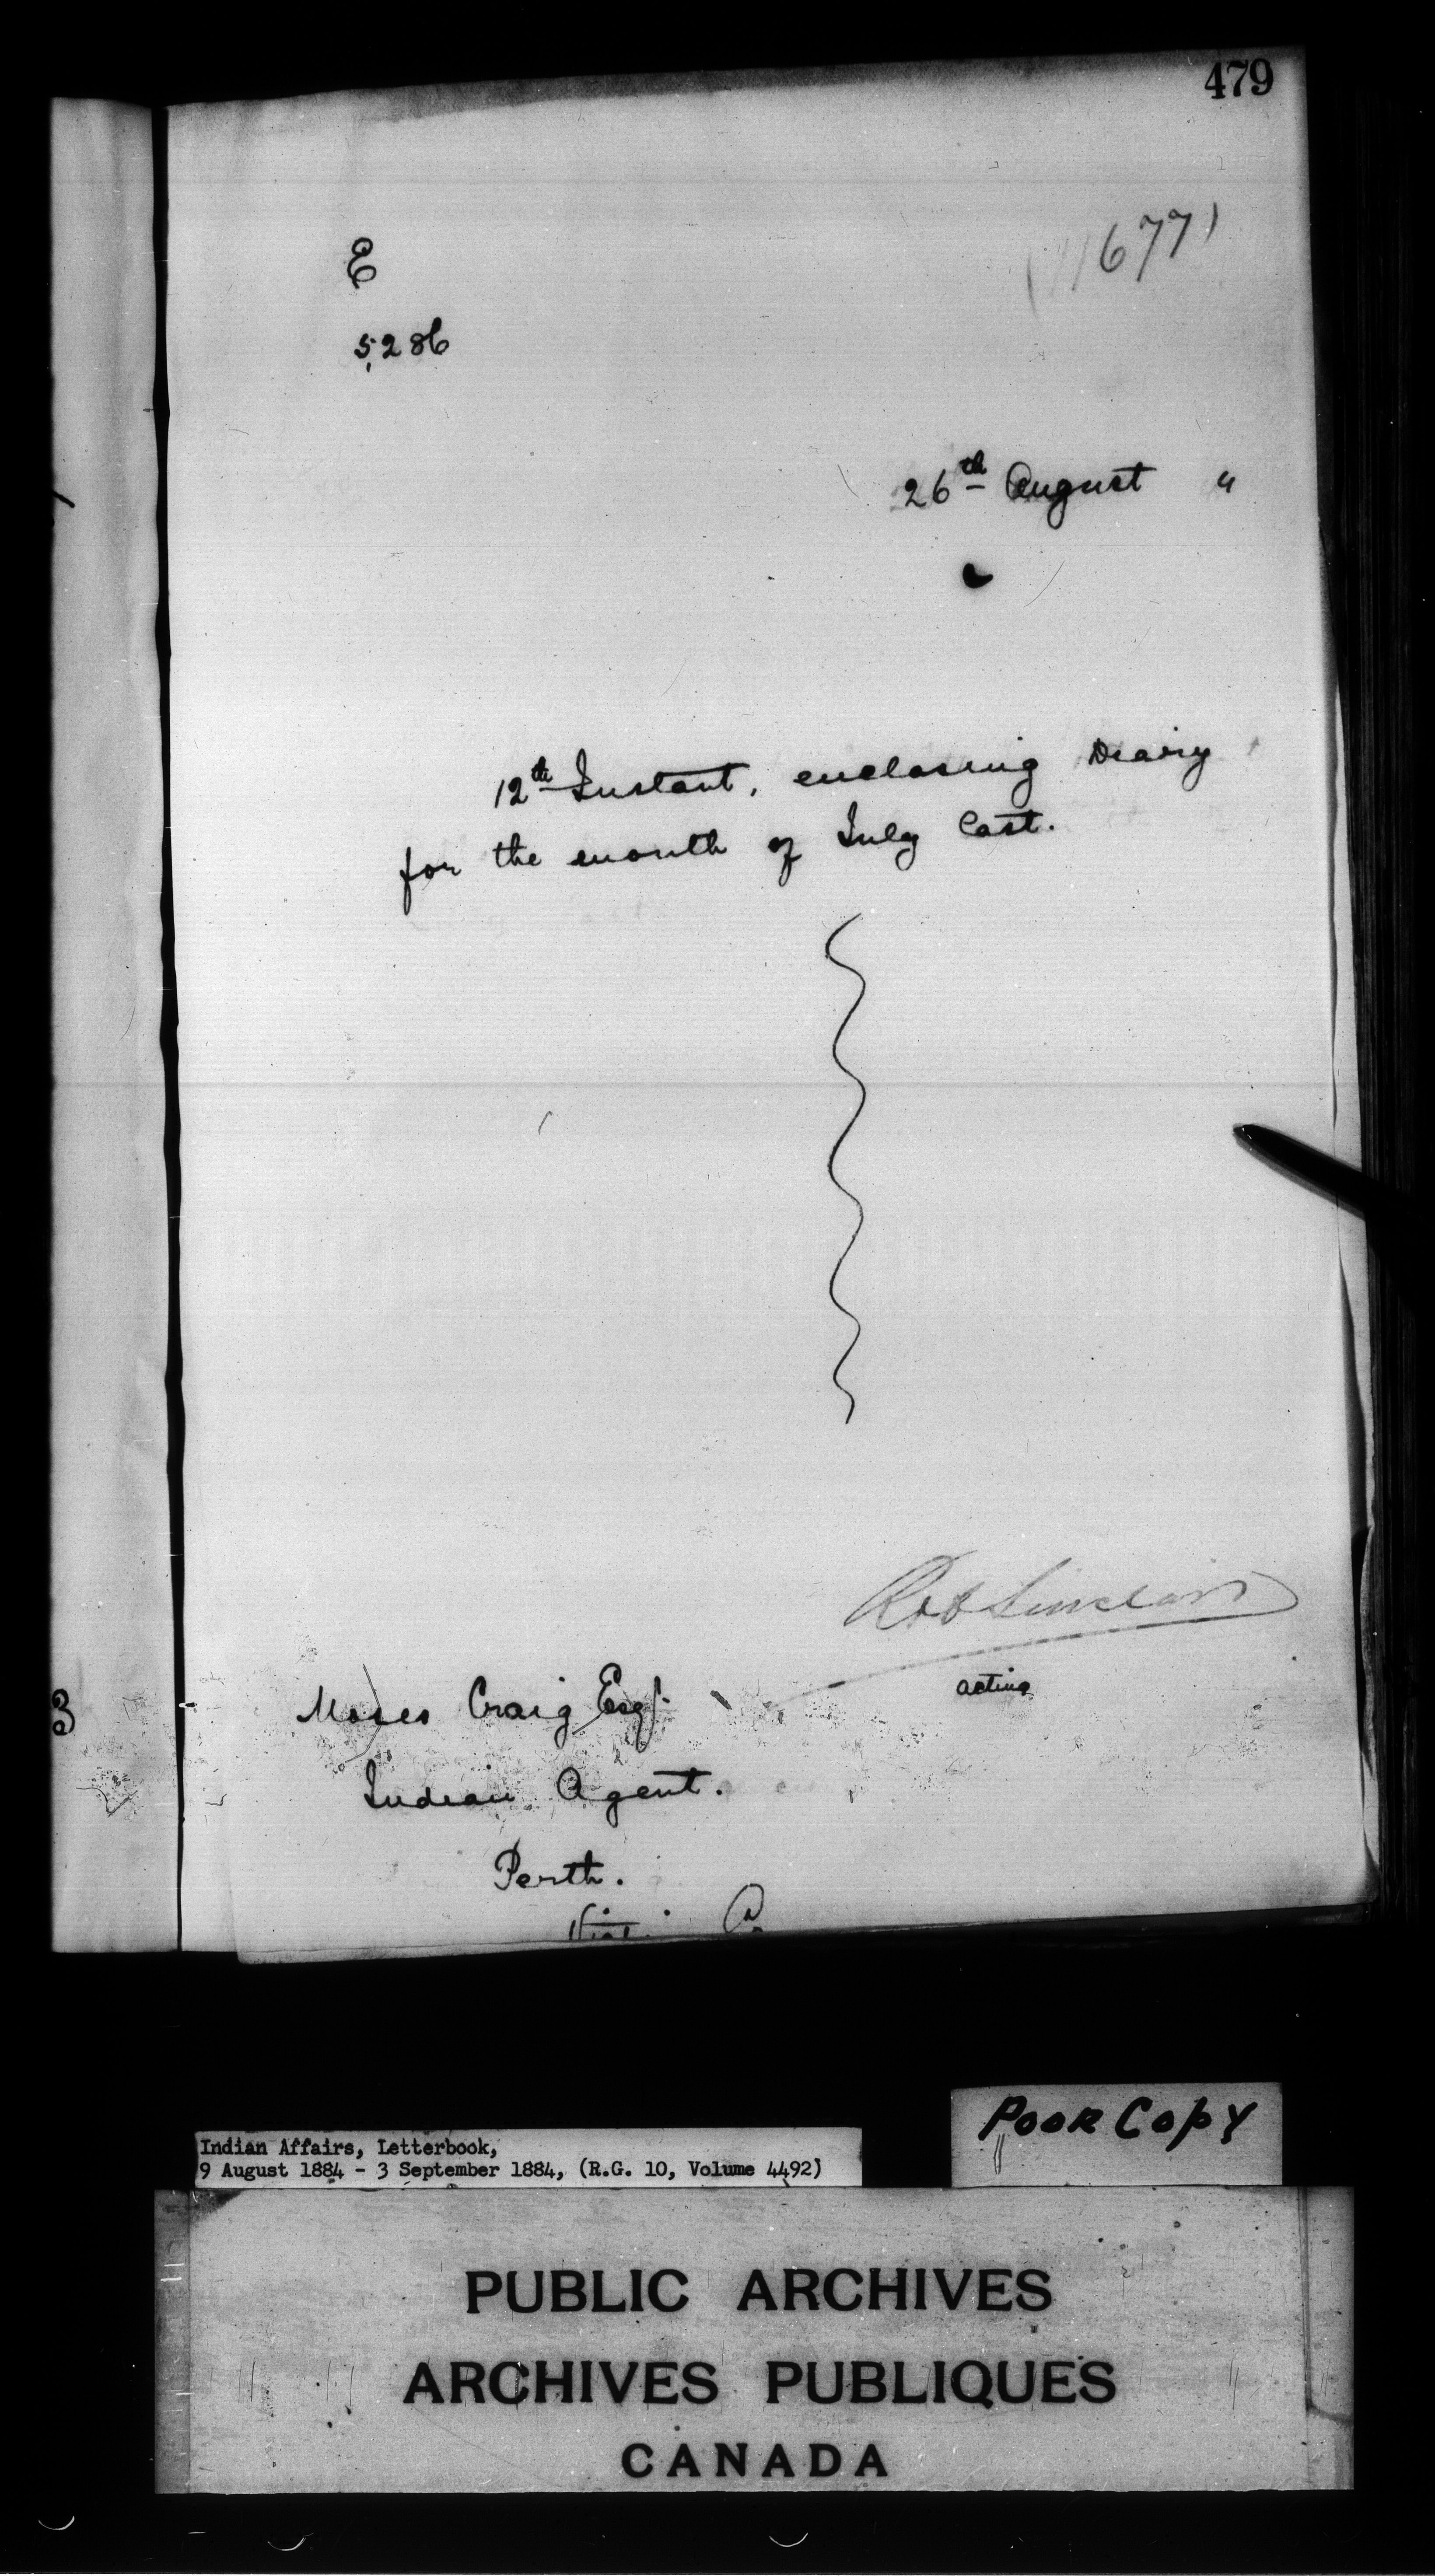 479
E
5286
11677
26th August "
12th Instant, enclosing Diary
for the month of July last.
Rob Sinclair
acting
Moses Craig Esqr.
Indian Agent.
Perth.
3
Poor Copy
Indian Affairs, Letterbook,
9 August 1884 - 3 September 1884, (R.G. 10, Volume 4492)
PUBLIC ARCHIVES
ARCHIVES PUBLIQUES
CANADA